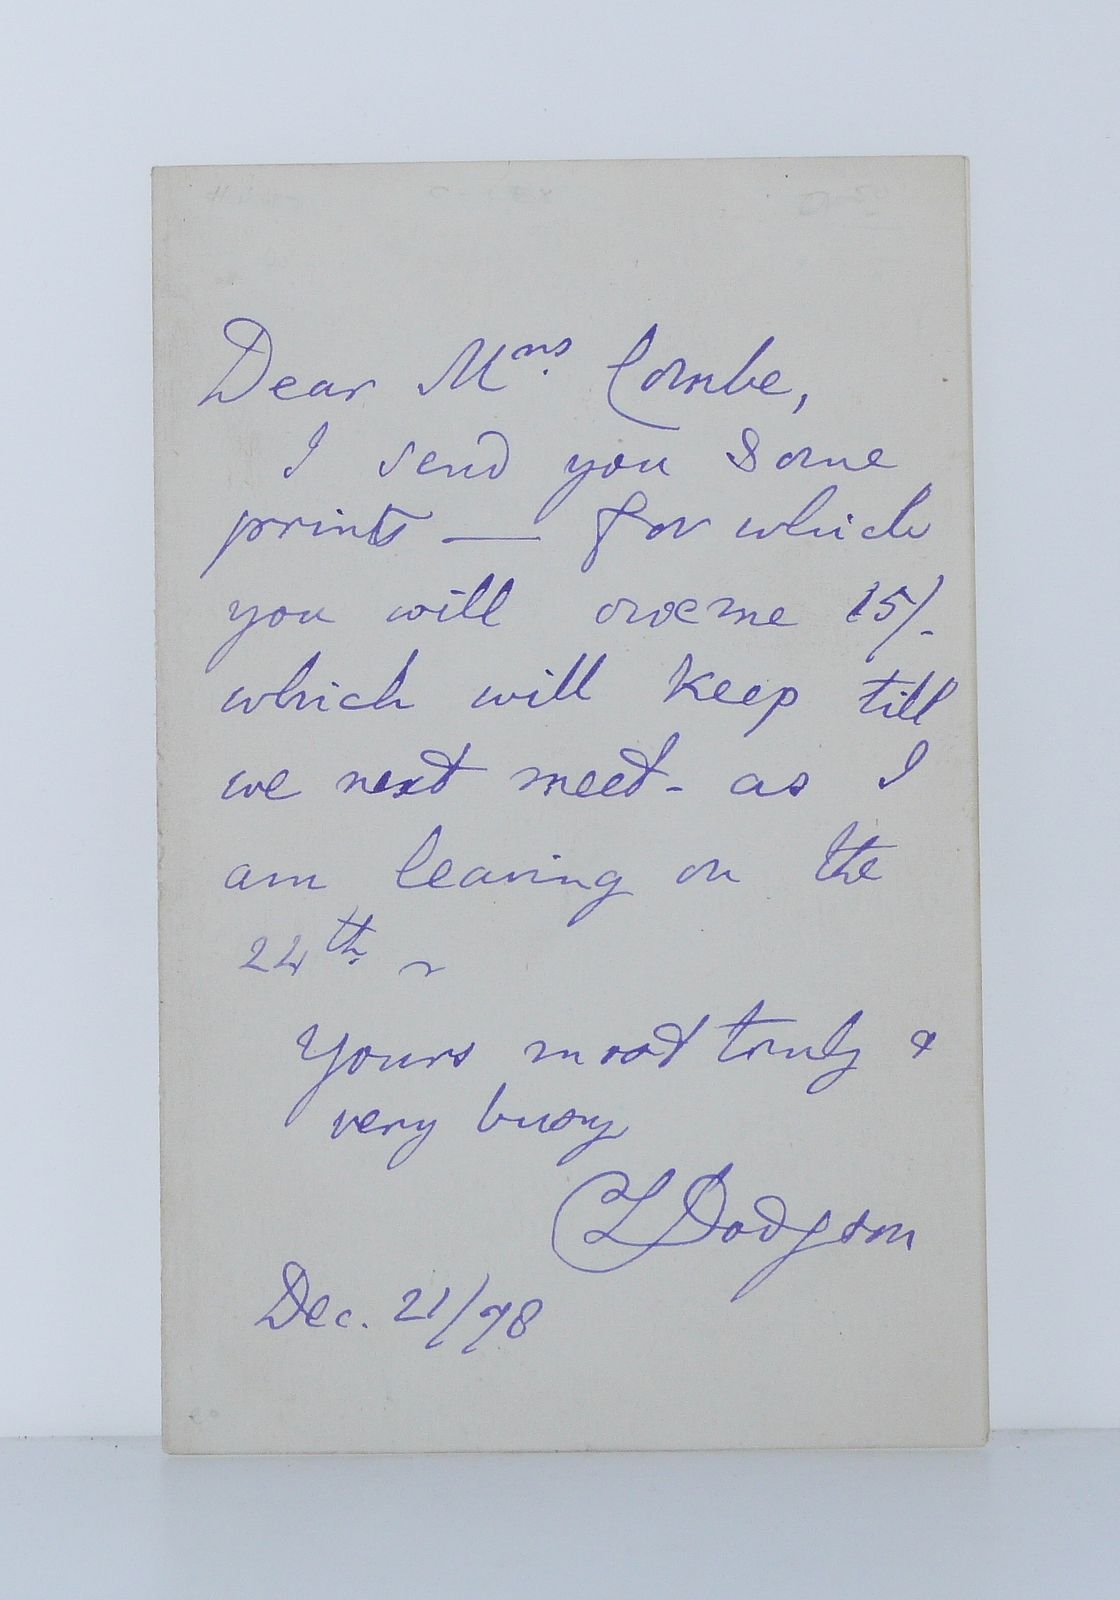 Dear Mrs. Combe,
I send you some
prints — for which
you will owe me 15/-
which will keep till
we next meet - as I
am leaving on the
24th.
Yours most truly &
very busy
CLDodgson
Dec. 21/78